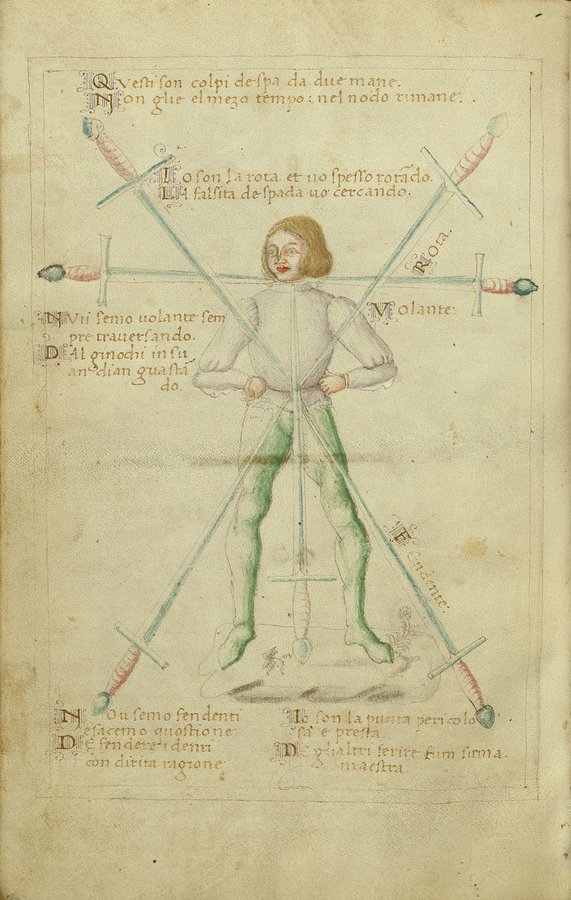 Questi son colpi de spa da due mane.
Non glie el mezo tempo: nel nodo rimane.
Io son la rota et uo spesso rotādo.
La falsita de spada uo cercando.
Rota.
Nvii semo uolante sem
pre traversando.
Dal ginochi in su
an dian guastā
do.
Volante:
Fendente:
Noii semo fendenti
e facemo questione
De fendere i denti
con dirita ragione
Io son la punta pericolo
sa e presta.
De gli altri ferire sum
maestra.